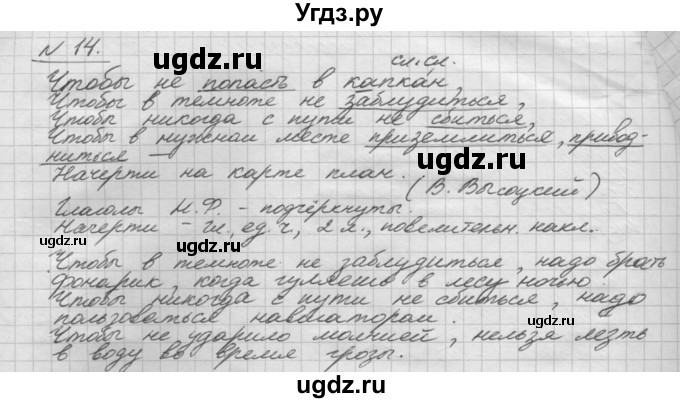 Угдз.ру
N 14.
сл.сл.
Чтобы не попасть в капкан,
Чтобы в темноте не заблудиться,
Чтобы никогда с пути не сбиться,
Чтобы в нужном месте приземлиться, привод-
ниться —
Начерти на карте план.
(В. Высоцкий)
Глаголы Н.Ф. - подчёркнуты.
Начерти - гл., ед.ч., 2 л., повелительн. накл.
Чтобы в темноте не заблудиться, надо брать
фонарик, когда гуляешь в лесу ночью.
Чтобы никогда с пути не сбиться, надо
пользоваться навигатором.
Чтобы не ударило молнией, нельзя лезть
в воду во время грозы.
ugdz.ru
ugdz.ru
ugdz.ru
ugdz.ru
ugdz.ru
ugdz.ru
ugdz.ru
ugdz.ru
ugdz.ru